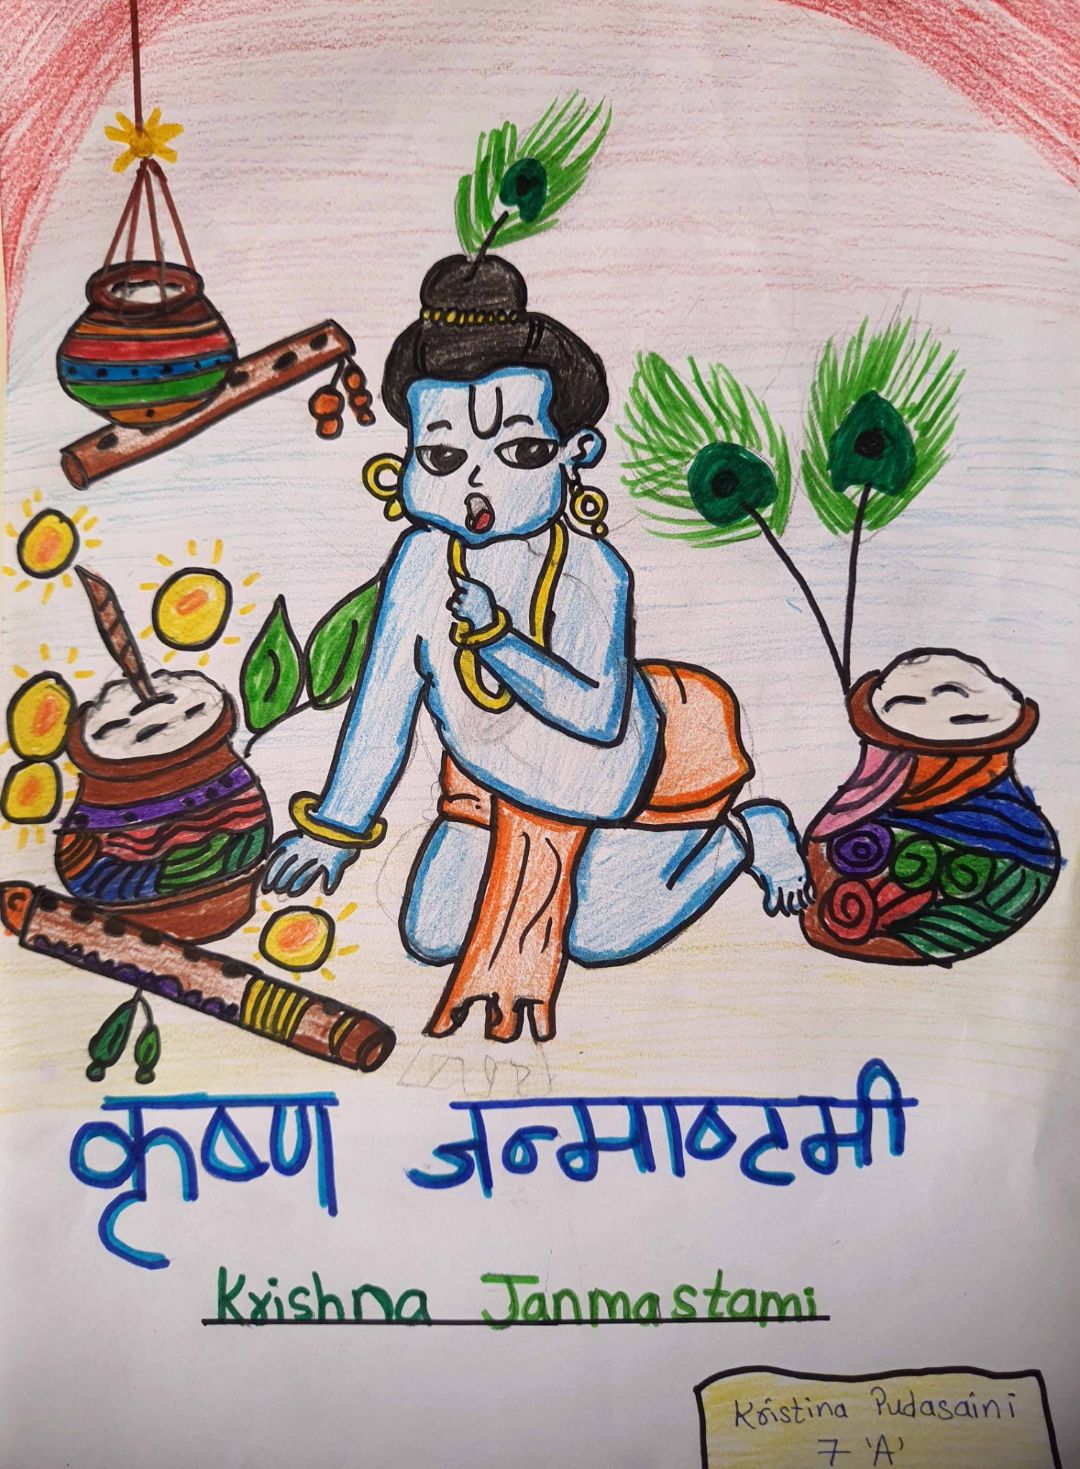 कृष्ण जन्माष्टमी
Krishna Janmastami
Kristina Pudasaini
7 'A'